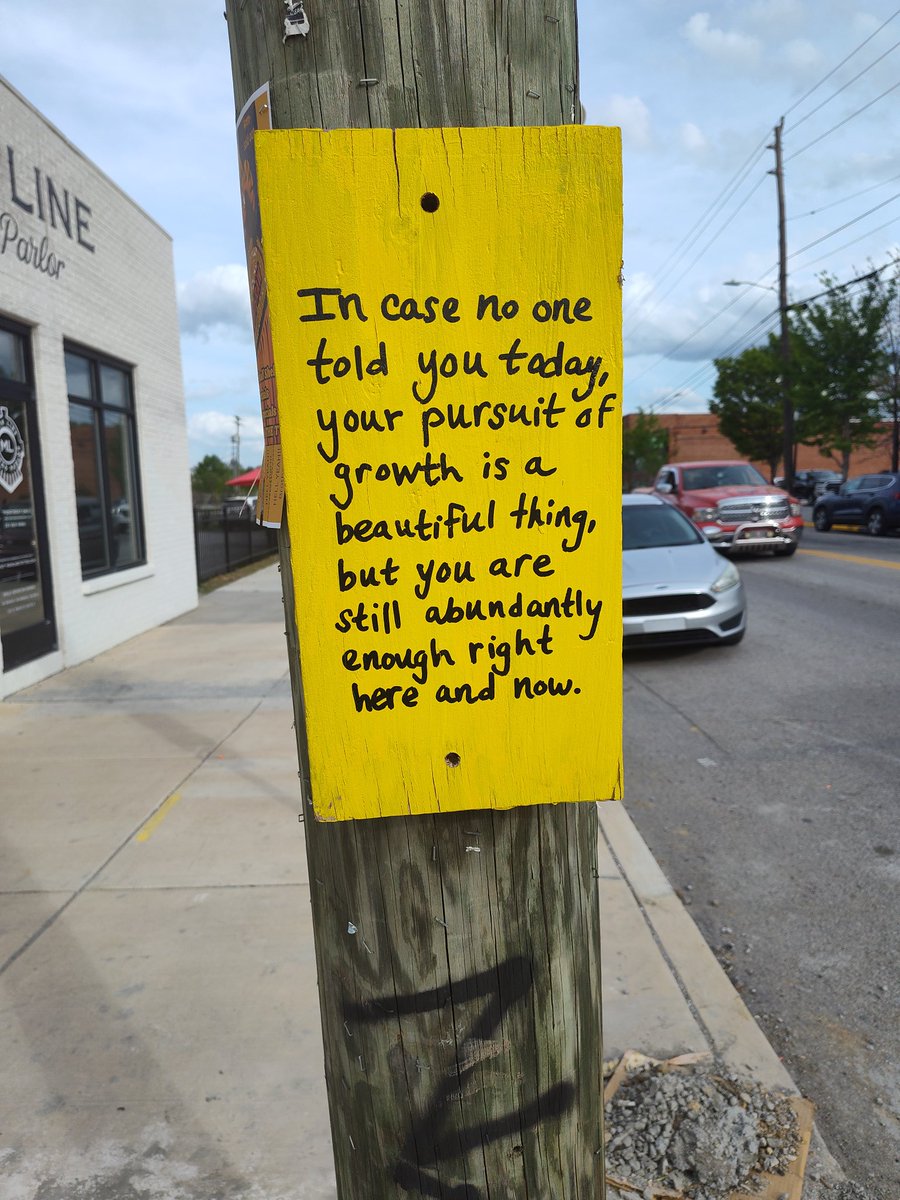 LINE
Parlor
In case no one
told you today,
your pursuit of
growth is a
beautiful thing,
but you are
still abundantly
enough right
here and now.